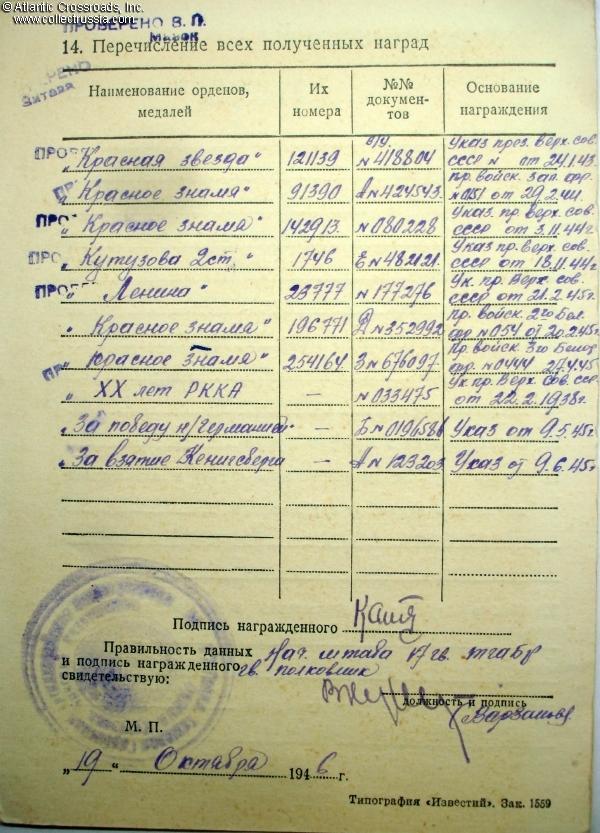 © Atlantic Crossroads, Inc.
www.collectrussia.com
ПРОВЕРЕНО В. П.
14. Перечисление всех полученных наград
Наименование орденов, медалей Их номера №№ документов Основание награждения
ПРО „Красная звезда“ 121139 N 418804 Указ през. Верх. сов. СССР N от 24.1.43
„Красное знамя“ 91390 А N 424543 Пр. войск. Зап. фр. N 051 от 29.2.44.
ПРО „Красное знамя“ 142913 N 080228 Указ. пр. Верх. сов. СССР от 3.11.44г.
ПРО „Кутузова 2 ст.“ 1746 Е N 482121 Указ пр. Верх. сов. СССР от 18.11.44г
ПРО „Ленина“ 23777 N 177276 Ук. пр. Верх. сов. СССР от 21.2.45г.
„Красное знамя“ 196771 Д N 352992 Пр. войск. 2го Бел. фр. N 034 от 20.2.45г.
„Красное знамя“ 254164 З N 676097 Пр. войск. 3го Белор. фр. N 0444 27.4.45
„XX лет РККА – N 033475 Ук. пр. Верх. Сов. ССР от 22.2.1938г.
„За победу н/Германией“ – Б N 0196586 Указ от 9.5.45г.
„За взятие Кенигсберга – А N 123203 Указ от 9.6.45г
Подпись награжденного
Правильность данных и подпись награжденного свидетельствую:
Нач. штаба 17 гв.
гв. полковник
должность и подпись
М. П.
„19“ Октября 1946 г.
Типография «Известий». Зак. 1559